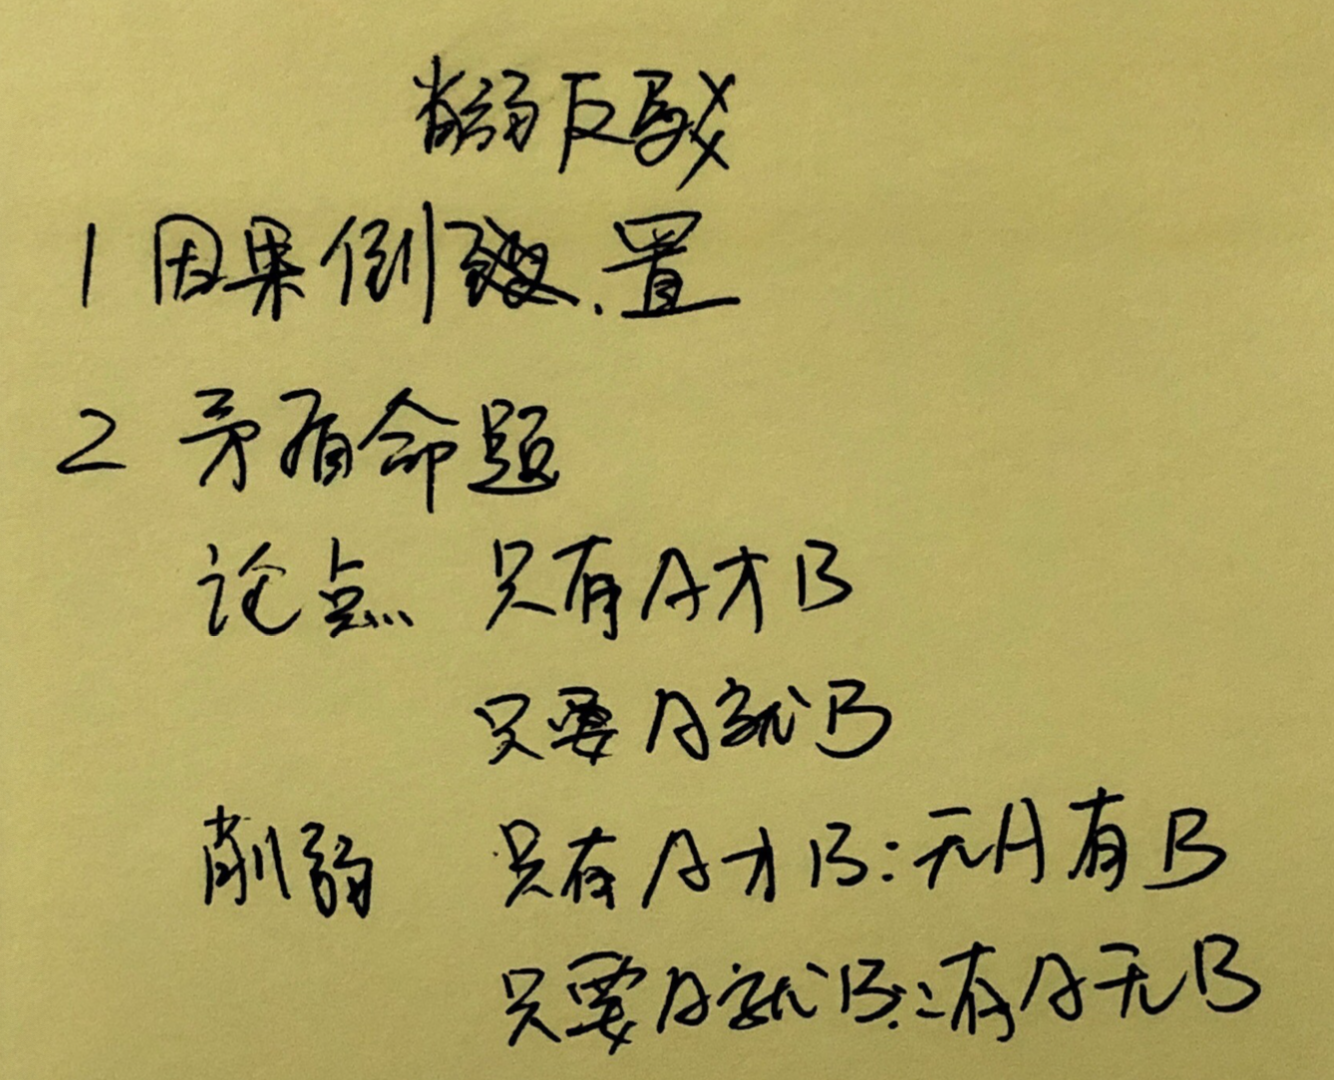 削弱反驳
1 因果倒置
2 矛盾命题
论点 只有A才B
只要A就B
削弱 只有A才B:无A有B
只要A就B:有A无B